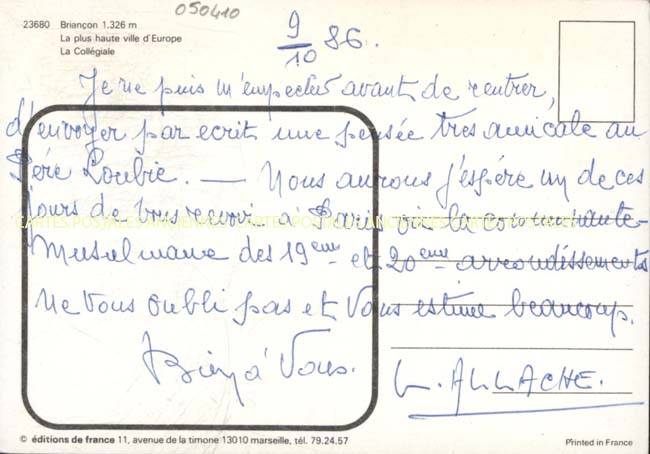 050410
23680 Briançon 1.326 m
La plus haute ville d'Europe
La Collégiale
9/10 86.
Je ne puis m'empecher avant de rentrer,
d'envoyer par ecrit une pensée tres amicale au
Père Loubie. — Nous aurons j'espére un de ces
jours de vous revoir à Paris où la communauté
Musulmane des 19eme et 20eme arrondissements
ne vous oubli pas et vous estime beaucoup.
Bien à Vous.
ALLACHE.
© éditions de france 11, avenue de la timone 13010 marseille, tél. 79.24.57
Printed in France